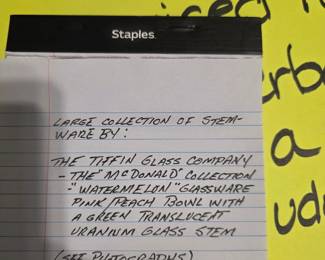 Staples
LARGE COLLECTION OF STEM-
WARE BY:
THE TIFFIN GLASS COMPANY
- THE "McDONALD" COLLECTION
- "WATERMELON" GLASSWARE
PINK/PEACH BOWL WITH
A GREEN TRANSLUCENT
URANIUM GLASS STEM
(SEE PHOTOGRAPHS)
a